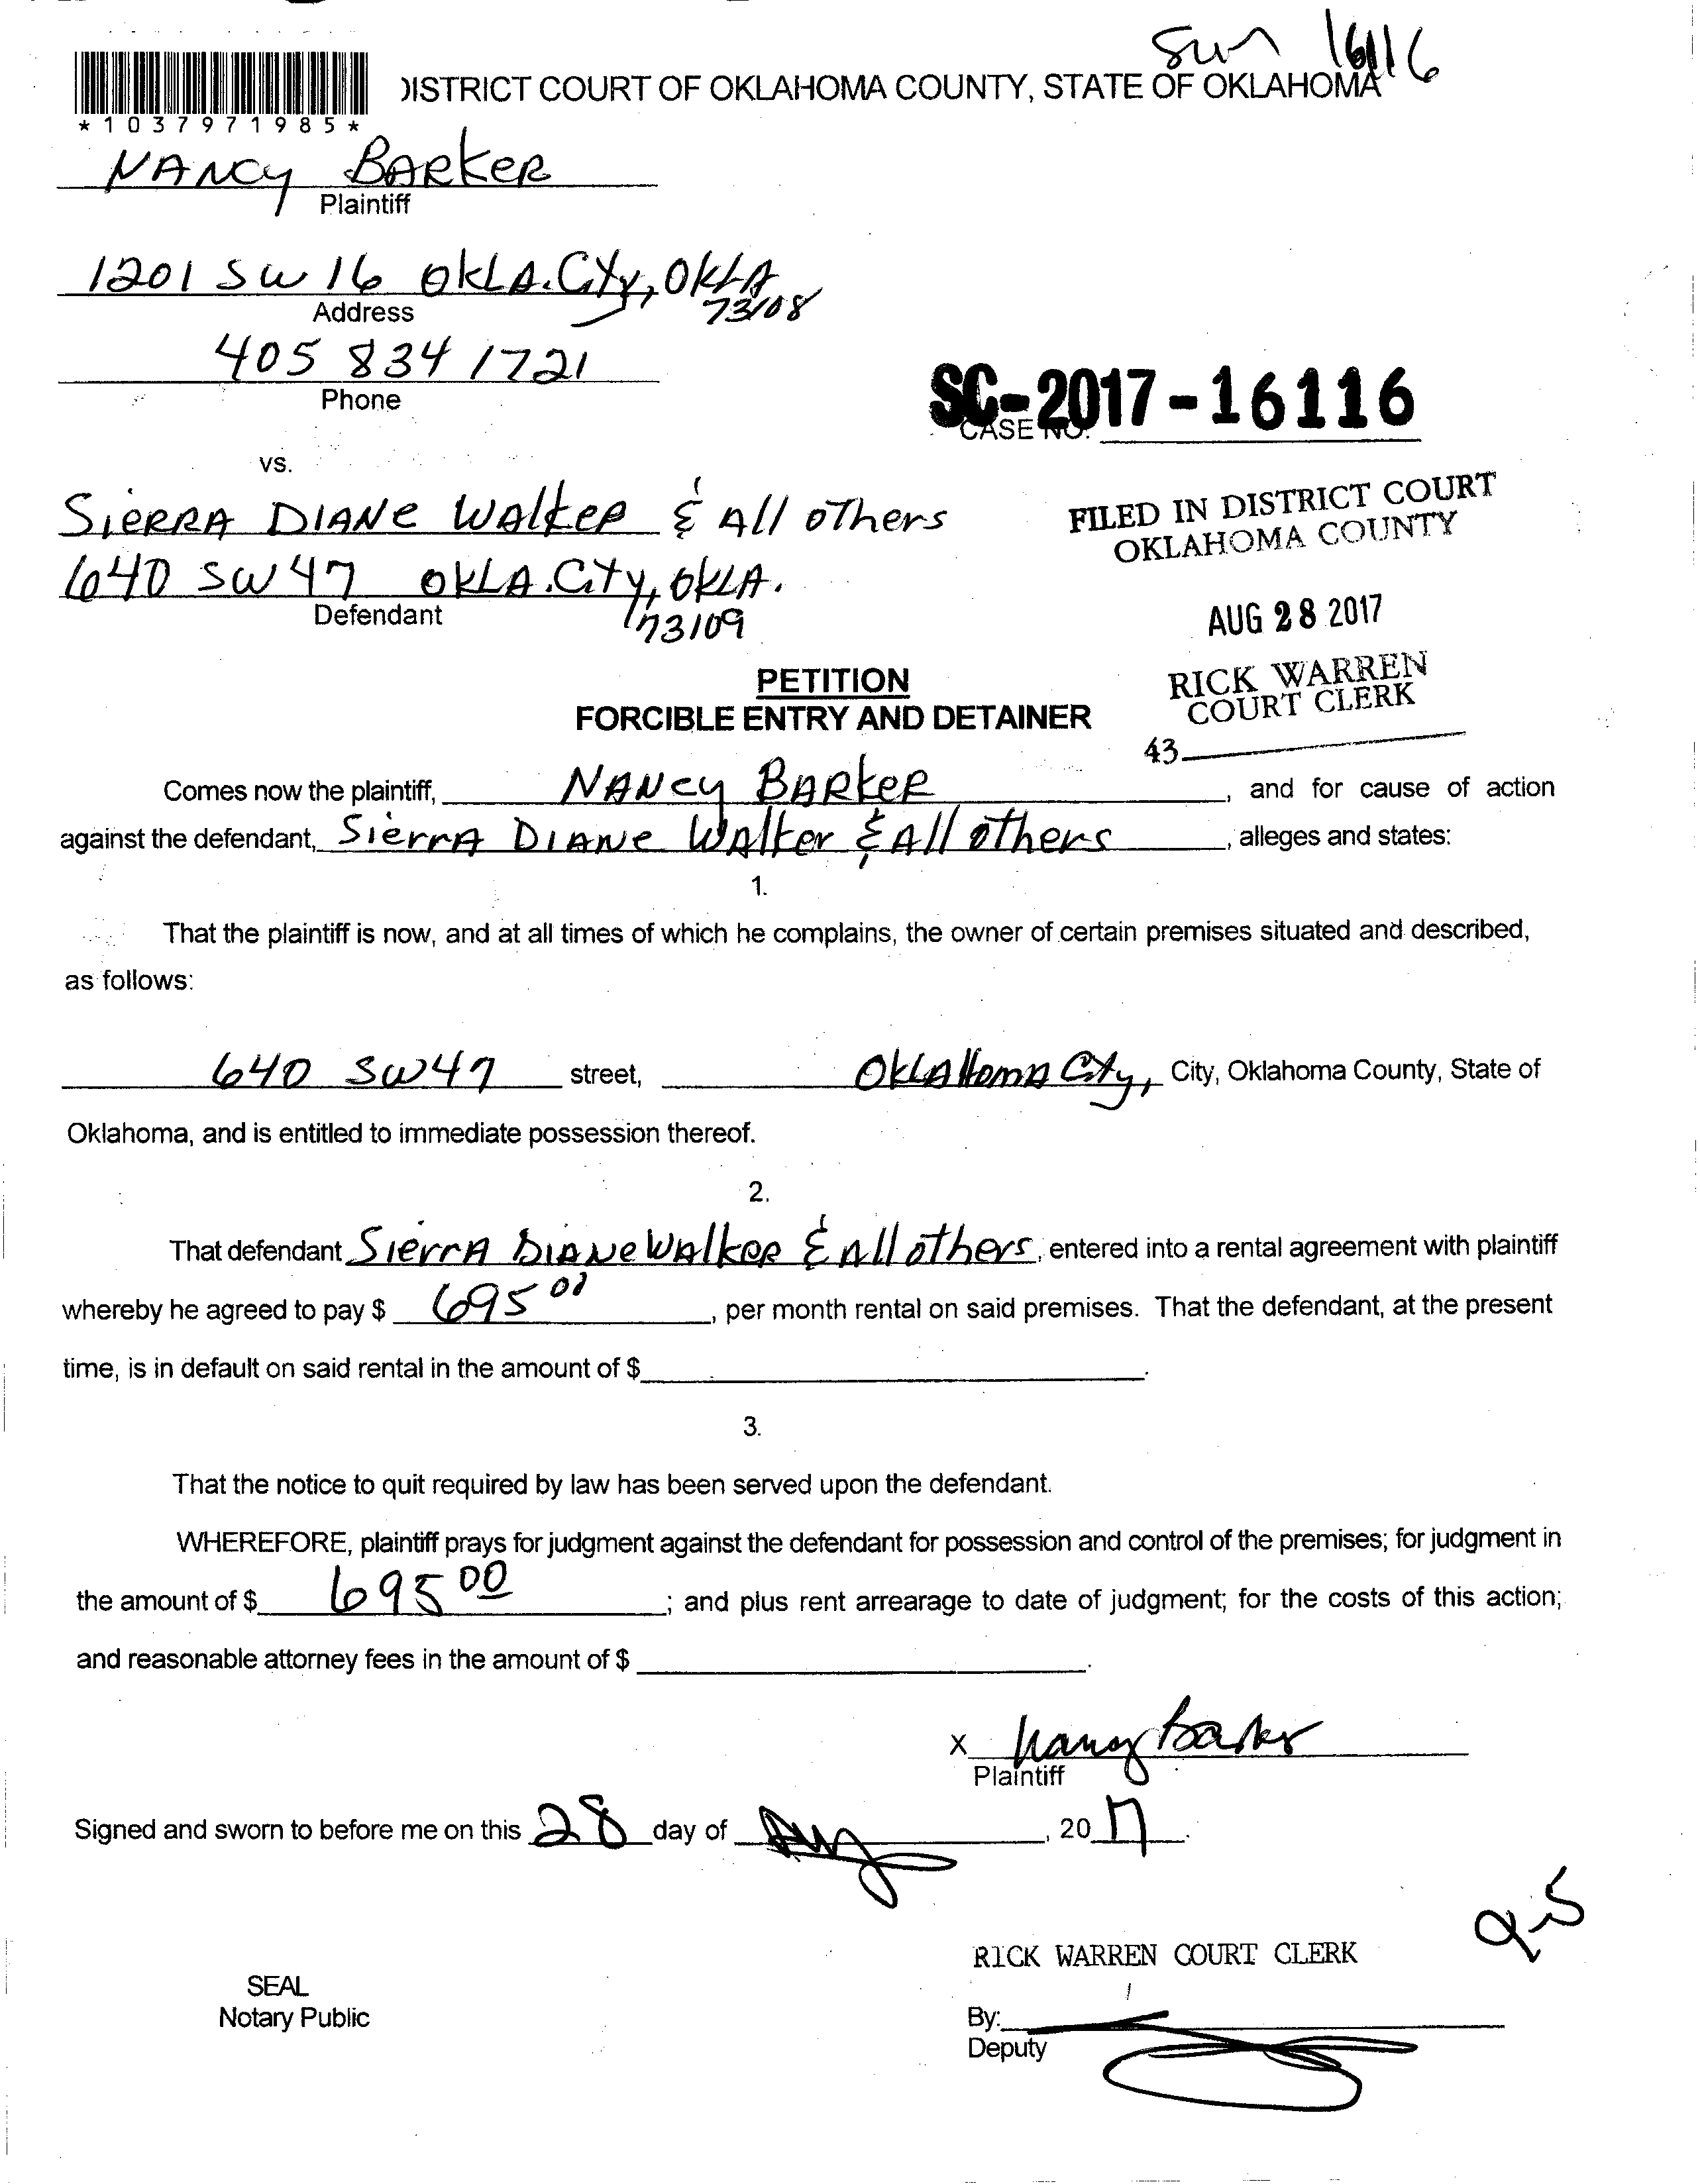 Sum 16116
DISTRICT COURT OF OKLAHOMA COUNTY, STATE OF OKLAHOMA
*1037971985*
NANCY BARKER
Plaintiff
1201 SW 16 OKLA. City, OKLA
73108
Address
405 834 1721
Phone
SC-2017-16116
CASE NO.
vs.
SIERRA DIANE WALKER & All others
640 SW 47 OKLA. City, OKLA.
73109
Defendant
FILED IN DISTRICT COURT
OKLAHOMA COUNTY
AUG 28 2017
RICK WARREN
COURT CLERK
43
PETITION
FORCIBLE ENTRY AND DETAINER
Comes now the plaintiff, NANCY BARKER, and for cause of action
against the defendant, SIERRA DIANE Walker & All others, alleges and states:
1.
That the plaintiff is now, and at all times of which he complains, the owner of certain premises situated and described,
as follows:
640 SW 47 street, OKLAHOMA City, City, Oklahoma County, State of
Oklahoma, and is entitled to immediate possession thereof.
2.
That defendant SIERRA DIANE WALKER & All others, entered into a rental agreement with plaintiff
whereby he agreed to pay $ 695 00, per month rental on said premises. That the defendant, at the present
time, is in default on said rental in the amount of $.
3.
That the notice to quit required by law has been served upon the defendant.
WHEREFORE, plaintiff prays for judgment against the defendant for possession and control of the premises; for judgment in
the amount of $ 695 00; and plus rent arrearage to date of judgment; for the costs of this action;
and reasonable attorney fees in the amount of $.
X Nancy Barker
Plaintiff
Signed and sworn to before me on this 28 day of Aug, 20 17.
9-5
RICK WARREN COURT CLERK
SEAL
Notary Public
By:
Deputy